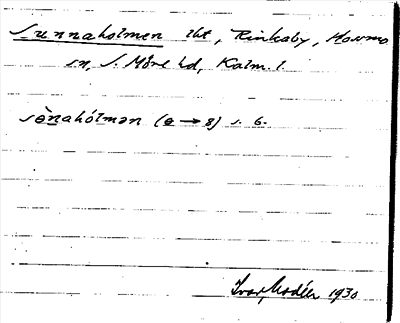 Sunnaholmen tht, Rinkaby, Hossmo
sn, S. Möre hd, Kalm. l.
sènahólmən (e → 8) s. 6.
Ivar Modéer 1930